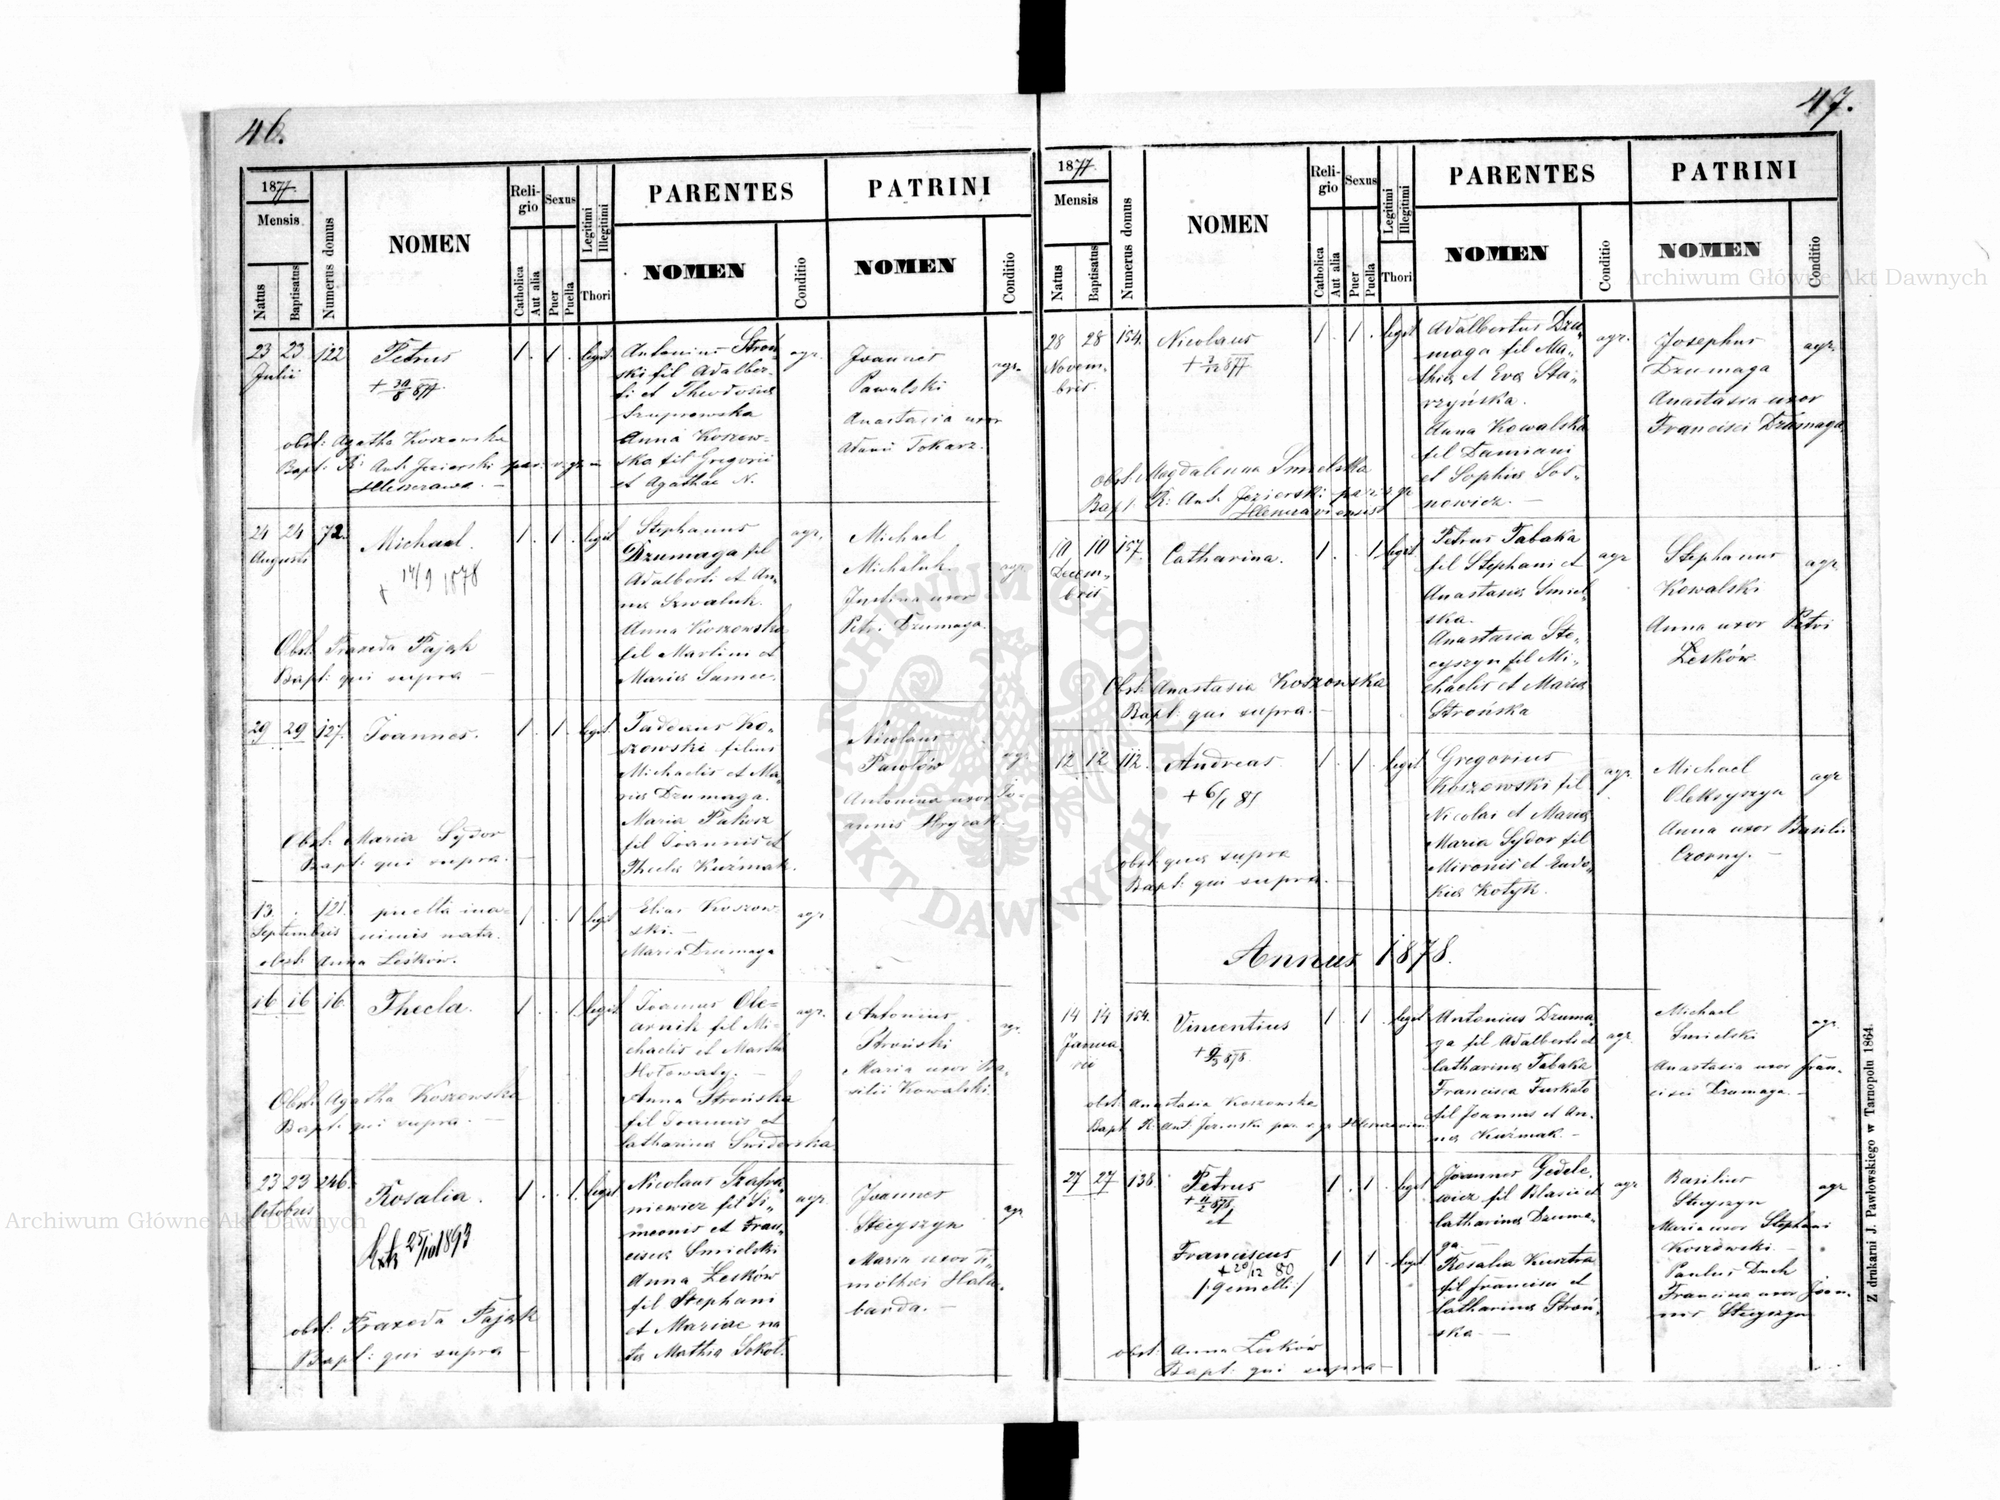 46.
1877
Mensis
Natus
Baptisatus
Numerus domus
NOMEN
Religio
Catholica
Aut alia
Sexus
Puer
Puella
Legitimi
Illegitimi
Thori
PARENTES
NOMEN
Conditio
PATRINI
NOMEN
Conditio
23 23 122 Petrus 1 . 1 . legit.
Julii
+ 30/8 877.
Antonius Stroń-
ski fil Adalber-
ti et Theodosia
Szuprowska
Anna Koszow-
ska fil Gregorii
et Agathae N.
agr.
Joannes
Pawulski
Anastasia uxor
Adami Tokarz.
agr.
obst: Agatha Koszowska
Bapt: R: Ant. Jezierski par: r. gr. in
Hleszczawa. —
24 24 72. Michael. 1 . 1 . legit
Augusti
+ 14/9 1878
Stephanus
Dzumaga fil
Adalberti et An-
na Szwaluk.
Anna Koszowska
fil Martini et
Maria Samec.
agr.
Michael
Michaluk.
Justina uxor
Petri Dzumaga.
agr.
Obst: Praxeda Pająk
Bapt: qui supra —
29 29 127. Joannes. 1 . 1 . legit.
Tadeaus Ko-
szowski filius
Michaelis et Ma-
ria Dzumaga.
Maria Palusz
fil Joannis et
Thecla Kuźmak.
Nicolaus
Pawlów
Antonina uxor Jo-
annis Hrycak.
agr.
Obst: Maria Sydor
Bapt: qui supra. —
13. . 121. puella ina- 1 . . 1 legit
Septembris nimis nata.
obst: Anna Leśków.
Elias Koszow-
ski. —
Maria Dzumaga
agr
16 16 16. Thecla. 1 . . 1. legit
Joannes Ole-
arnik fil Mi-
chaelis et Martha
Hołowaty. —
Anna Strońska
fil Joannis et
Catharina Świderska
agr.
Antonius
Stroński
Maria uxor Ba-
silii Kowalski.
agr.
Obst: Agatha Koszowska
Bapt: qui supra. —
23 23 246. Rosalia. 1 . . 1. legit
Octobris
25/10 1893
Nicolaus Szafra-
niewicz fil Si-
meones et Fran-
cisca Smielski
Anna Leśków
fil Stephani
et Mariae na
ta Mathia Sokoł.
agr.
Joannes
Stecyszyn
Maria uxor Ti-
mothei Hała-
barda. —
agr
obst: Praxeda Pająk
Bapt: qui supra —
47.
1877
Mensis
Natus
Baptisatus
Numerus domus
NOMEN
Religio
Catholica
Aut alia
Sexus
Puer
Puella
Legitimi
Illegitimi
Thori
PARENTES
NOMEN
Conditio
PATRINI
NOMEN
Conditio
28 28 154. Nicolaus 1 . 1 . legit
Novem-
bris.
+ 3/12 877
Adalbertus Dzu-
maga fil Ma-
thia et Eva Sta-
rzyńska.
Anna Kowalska
fil Damiani
et Sophia Sos-
nowicz. —
agr.
Josephus
Dzumaga
Anastasia uxor
Francisci Dzumaga
agr.
obst: Magdalenna Smielska
Bapt: R: Ant. Jezierski par: r. gr
Hleszczaviensis
10 10 157. Catharina. 1 . . 1 legit
Decem-
bris
Petrus Tabaka
fil Stephani et
Anastasia Smiel-
ska.
Anastasia Ste-
cyszyn fil Mi-
chaelis et Maria
Strońska
agr
Stephanus
Kowalski
Anna uxor Petri
Leśków.
agr.
Obst: Anastasia Koszowska
Bapt: qui supra. —
12 12 112. Andreas. 1 . 1 . legit
+ 6/1 81
Gregorius
Koszowski fil
Nicolai et Maria
Maria Sydor fil
Mironis et Eudo-
kia Kotyk.
agr.
Michael
Oleksyszyn
Anna uxor Basilii
Czorny. —
agr
obst quae supra
Bapt: qui supra. —
Annus 1878.
14 14 154. Vincentius 1 . 1 . legit
Janua-
rii
+ 9/3 878.
Antonius Dzuma-
ga fil Adalberti et
Catharina Tabaka
Francisca Furkało
fil Joannes et An-
na Kuźmak. —
agr.
Michael
Smielski
Anastasia uxor Fran-
cisci Dzumaga. —
agr
obst: Anastasia Koszowska
Bapt R: Ant. Jezierski par. r. gr Hleszczavien.
27 27 138. Petrus 1 . 1 . legit
+ 11/2 878,
et
Franciscus 1 1 . legit
+ 20/12 80
/: gemelli :/
Joannes Gedele-
wicz fil Blasii et
Catharina Dzuma-
ga
Rosalia Kusztra
fil Francisci et
Catharina Stroń-
ska —
agr
Basilius
Stecyszyn
Maria uxor Stephani
Koszowski. —
Paulus Duch
Francina uxor Joan-
nis Stecyszyn
agr
obst: Anna Leśków
Bapt: qui supra —
Z drukarni J. Pawłowskiego w Tarnopolu 1864.
Archiwum Główne Akt Dawnych
Archiwum Główne Akt Dawnych
ARCHIWUM GŁÓWNE · AKT DAWNYCH ·